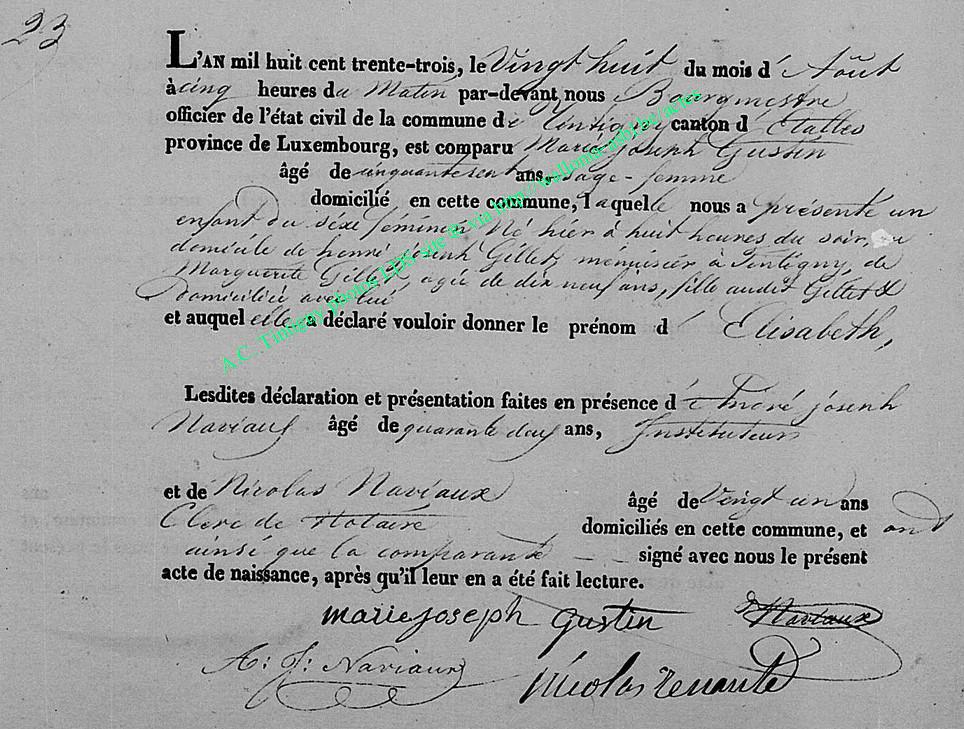 23
L'AN mil huit cent trente-trois, le Vingt huit du mois d' Août
à cinq heures du Matin par-devant nous Bourgmestre
officier de l'état civil de la commune de Tintigny canton d' Etalles
province de Luxembourg, est comparu Marie joseph Gustin
âgé de cinquante sept ans, sage-femme
domicilié en cette commune, laquelle nous a présenté un
enfant du sexe féminin Né hier à huit heures du soir, au
domicile de henri joseph Gillet, menuisier à Tintigny, de
Marguerite Gillet, agée de dix neuf ans, fille audit Gillet &
domiciliée avec lui
et auquel elle a déclaré vouloir donner le prénom d' Elisabeth,
Lesdites déclaration et présentation faites en présence d' André joseph
Naviaux âgé de quarante deux ans, Instituteur
et de Nicolas Naviaux âgé de Vingt un ans
Clerc de Notaire domiciliés en cette commune, et ont
ainsi que la comparante signé avec nous le présent
acte de naissance, après qu'il leur en a été fait lecture.
marie joseph gustin Naviaux
A: J: Naviaux Nicolas
A.C. Tintigny photos LDS site @ via http://wallonia.asbl.be/actes